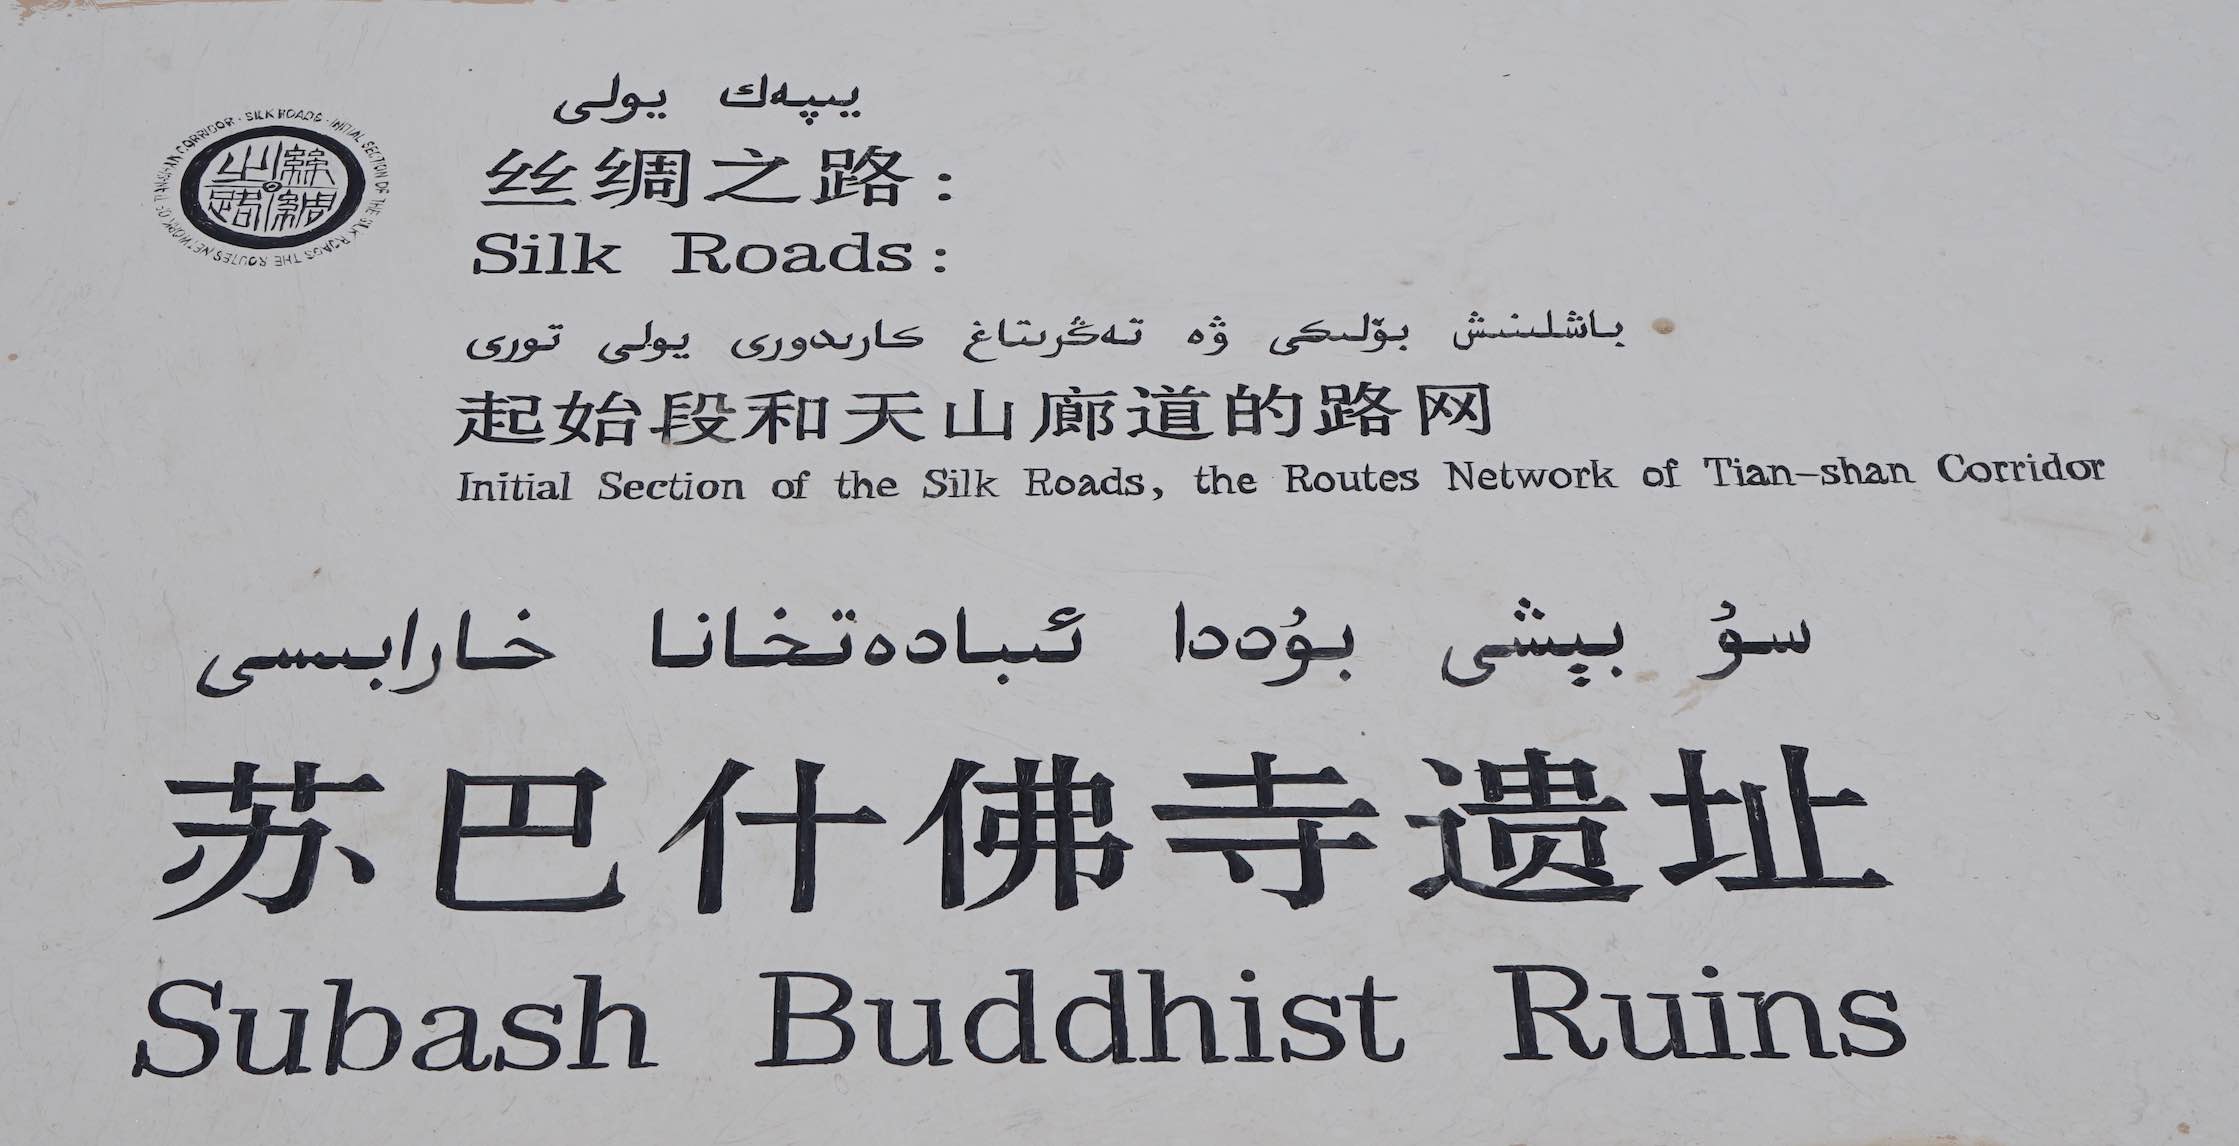 يىپەك يولى
丝绸之路：
Silk Roads:
باشلىنىش بۆلىكى ۋە تەڭرىتاغ كارىدورى يولى تورى
起始段和天山廊道的路网
Initial Section of the Silk Roads, the Routes Network of Tian-shan Corridor
سۇ بېشى بۇددا ئىبادەتخانا خارابىسى
苏巴什佛寺遗址
Subash Buddhist Ruins
SILK ROADS · INITIAL SECTION OF THE SILK ROADS THE ROUTES NETWORK OF TIAN-SHAN CORRIDOR ·
絲綢之路